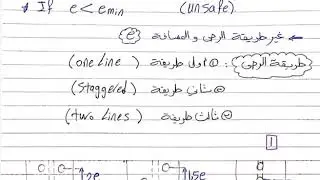 * If e < emin (unsafe).
← غير طريقة الرص و المسافة (e)
طريقة الرص : ① اول طريقة (one Line)
② ثانى طريقة (Staggered)
③ ثالث طريقة (two Lines)
1
2e 1.5e